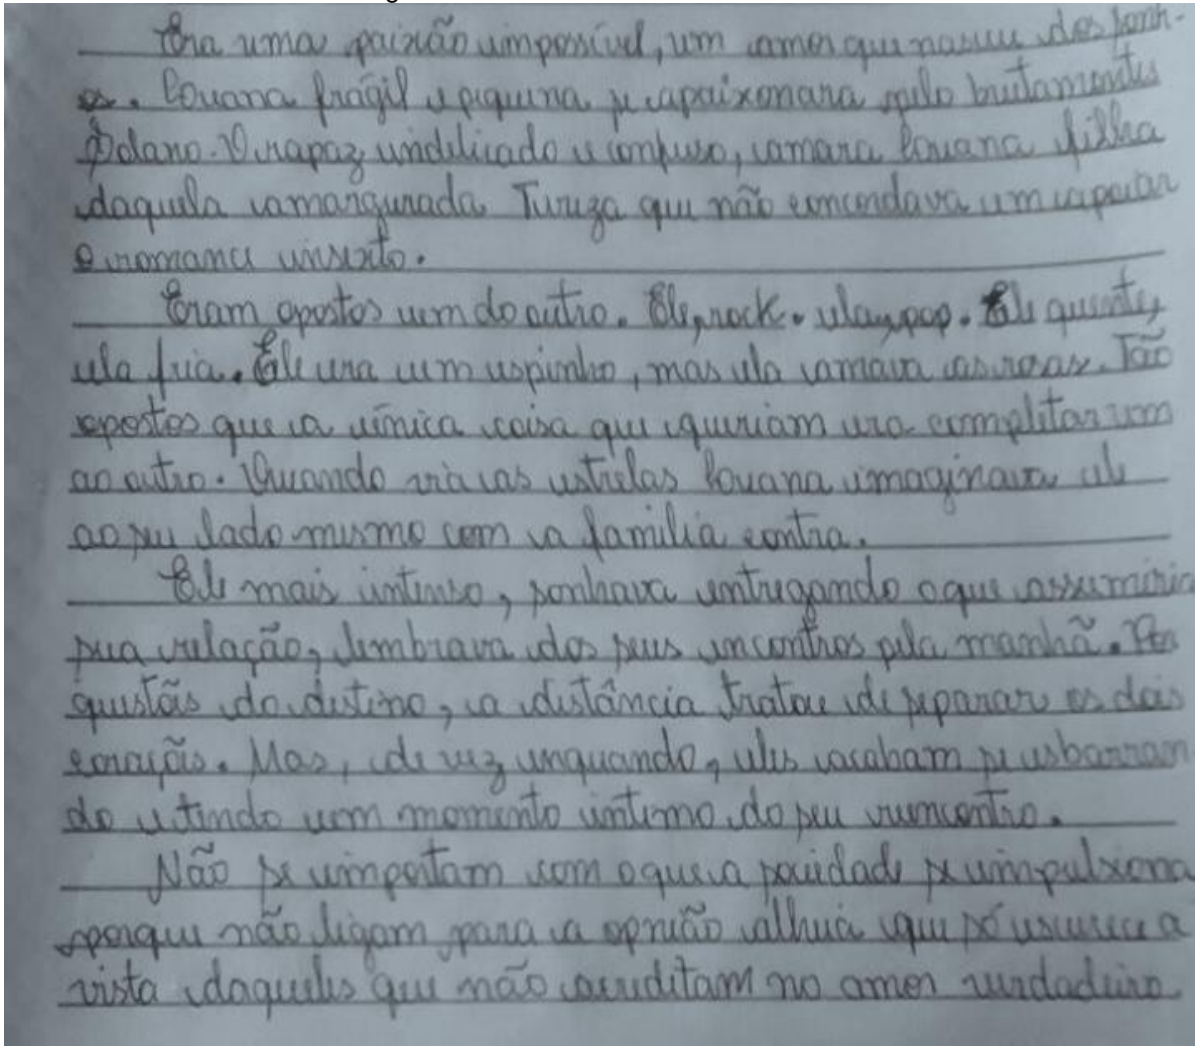 Era uma paixão impossível, um amor que nasceu dos sonh-
os. Louana frágil e pequena se apaixonara pelo brutamontes
Dolano. O rapaz indelicado e confuso, amara Louana filha
daquela amargurada Tereza que não concordava em apoiar
o romance inserto.
Eram opostos um do outro. Ele, rock. ela, pop. Ele quente,
ela fria. Ele era um espinho, mas ela amava as rosas. Tão
opostos que a única coisa que queriam era completar um
ao outro. Quando via as estrelas Louana imaginava ele
ao seu lado mesmo com a família contra.
Ele mais intenso, sonhava entregando o que assumiria
sua relação, lembrava dos seus encontros pela manhã. Por
questãs do destino, a distância tratou de separar os dois
coraçãs. Mas, de vez enquando, eles acabam se esbarran
do e tendo um momento íntimo do seu reencontro.
Não se importam com o que a sociedade se impulsiona
porque não ligam para a opnião alheia que só escurece a
vista daqueles que não acreditam no amor verdadeiro.